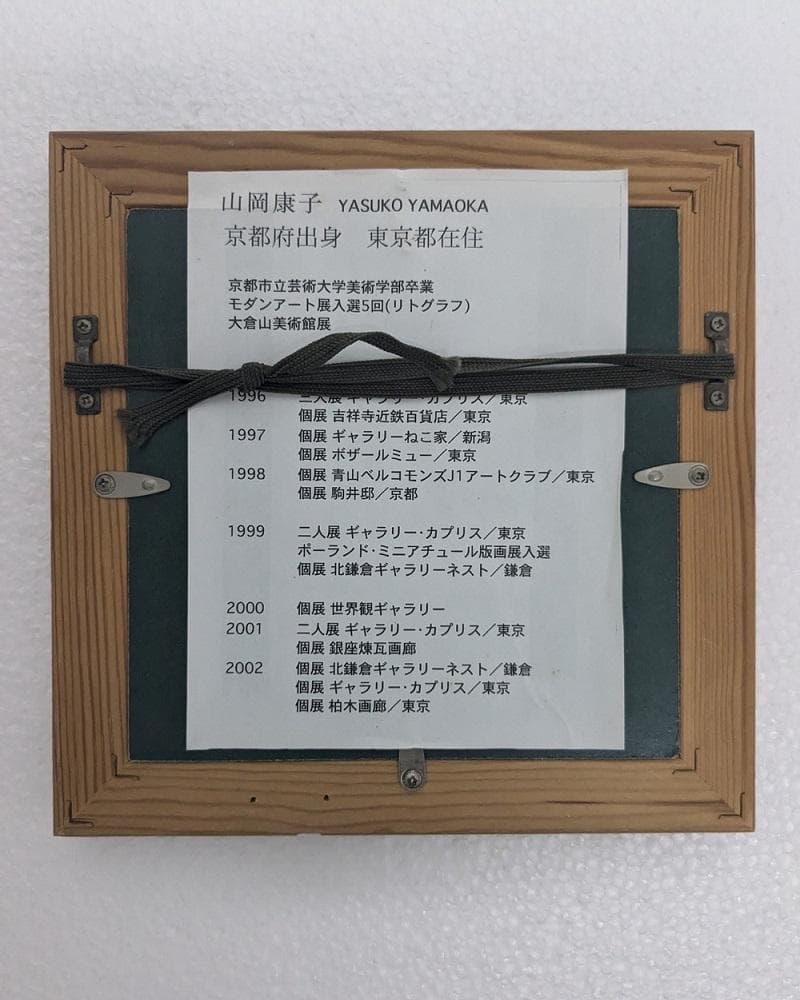 山岡康子 YASUKO YAMAOKA
京都府出身 東京都在住
京都市立芸術大学美術学部卒業
モダンアート展入選5回(リトグラフ)
大倉山美術館展
1996 二人展 ギャラリー・カプリス／東京
個展 吉祥寺近鉄百貨店／東京
1997 個展 ギャラリーねこ家／新潟
個展 ボザールミュー／東京
1998 個展 青山ベルコモンズJ1アートクラブ／東京
個展 駒井邸／京都
1999 二人展 ギャラリー・カプリス／東京
ポーランド・ミニアチュール版画展入選
個展 北鎌倉ギャラリーネスト／鎌倉
2000 個展 世界観ギャラリー
2001 二人展 ギャラリー・カプリス／東京
個展 銀座煉瓦画廊
2002 個展 北鎌倉ギャラリーネスト／鎌倉
個展 ギャラリー・カプリス／東京
個展 柏木画廊／東京